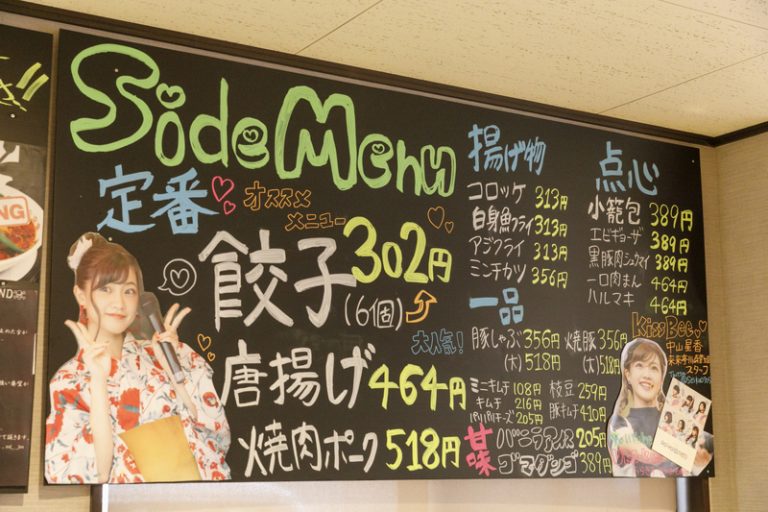 Side Menu
定番
オススメ
メニュー
餃子
(6個)
302円
大人気!
唐揚げ 464円
焼肉ポーク 518円
揚げ物
コロッケ 313円
白身魚フライ 313円
アジフライ 313円
ミンチカツ 356円
一品
豚しゃぶ 356円
(大) 518円
焼豚 356円
(大) 518円
ミニキムチ 108円
キムチ 216円
パリパリチーズ 205円
枝豆 259円
豚キムチ 410円
甘味
バニラアイス 205円
ゴマダンゴ 389円
点心
小籠包 389円
エビギョーザ 389円
黒豚肉シュウマイ 389円
一口肉まん 464円
ハルマキ 464円
KissBee
中山星香
スタッフ
NG
ND